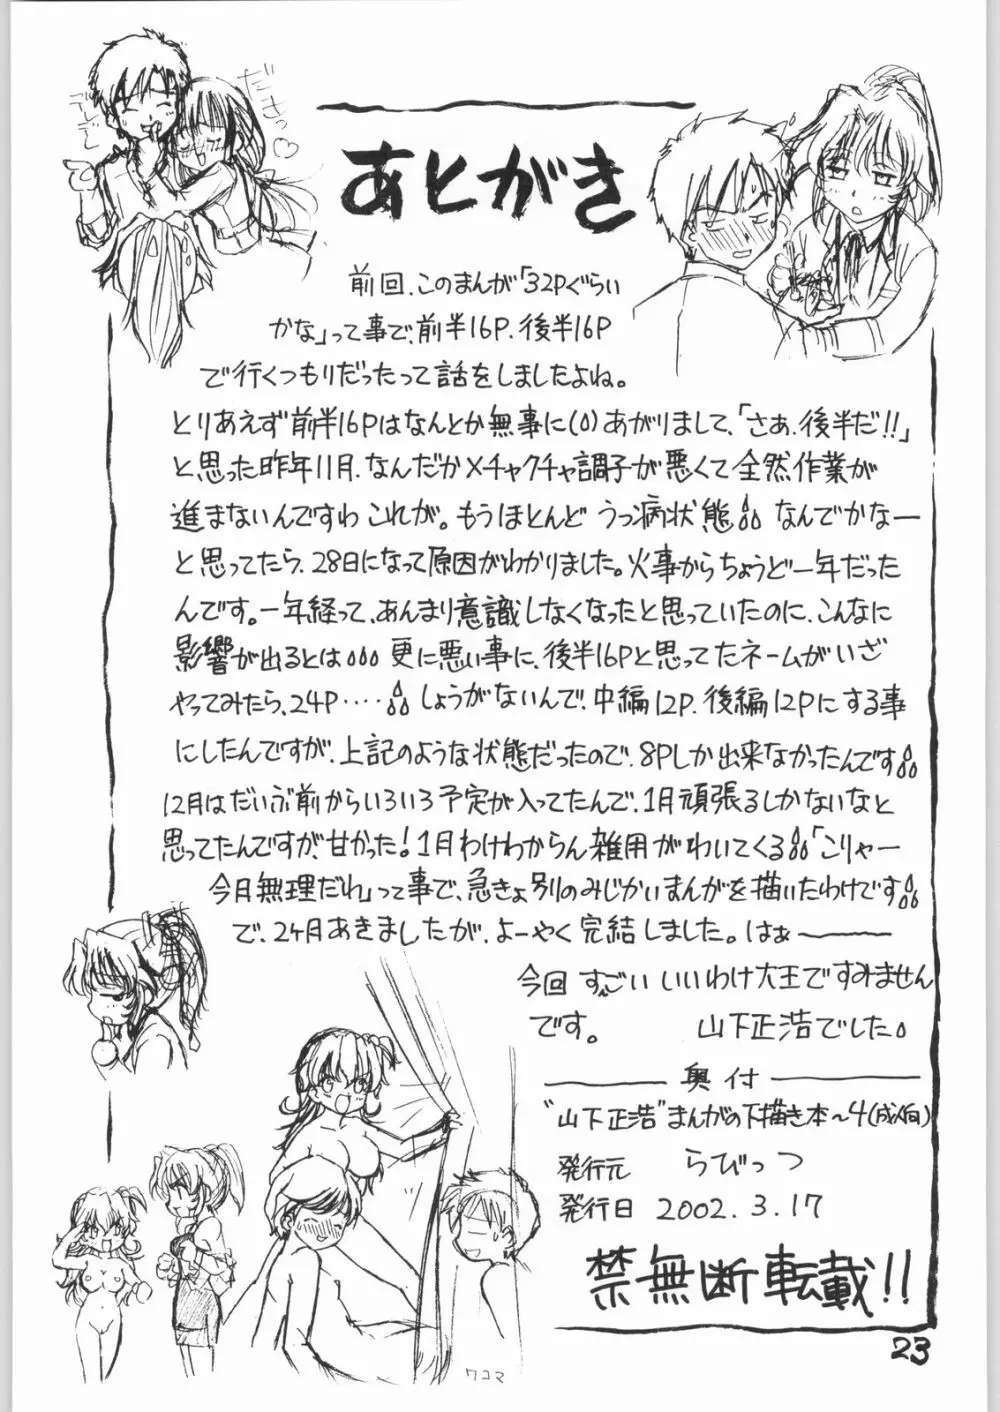 デレデレ
だきっ♡
あとがき
前回、このまんが「32Pぐらい
かな」って事で、前半16P、後半16P
で行くつもりだったって話をしましたよね。
とりあえず前半16Pはなんとか無事に(0)あがりまして、「さあ、後半だ!!」
と思った昨年11月、なんだかメチャクチャ調子が悪くて全然作業が
進まないんですわ これが。もうほとんど うつ病状態 なんでかなー
と思ってたら、28日になって原因がわかりました。火事からちょうど一年だった
んです。一年経って、あんまり意識しなくなったと思っていたのに、こんなに
影響が出るとは 更に悪い事に、後半16Pと思ってたネームがいざ
やってみたら、24P‥‥ しょうがないんで、中編12P、後編12Pにする事
にしたんですが、上記のような状態だったので、8Pしか出来なかったんです
12月はだいぶ前からいろいろ予定が入ってたんで、1月頑張るしかないなと
思ってたんですが、甘かった!1月わけわからん雑用がわいてくる「こりゃー
今月無理だわ」って事で、急きょ別のみじかいまんがを描いたわけです
で、24月あきましたが、よーやく完結しました。はぁ――
今回 すっごい いいわけ大王ですみません
です。 山下正浩でした。
奥付
"山下正浩"まんがの下描き本～4(成人向)
発行元 らびっつ
発行日 2002.3.17
禁無断転載!!
ワコマ
23